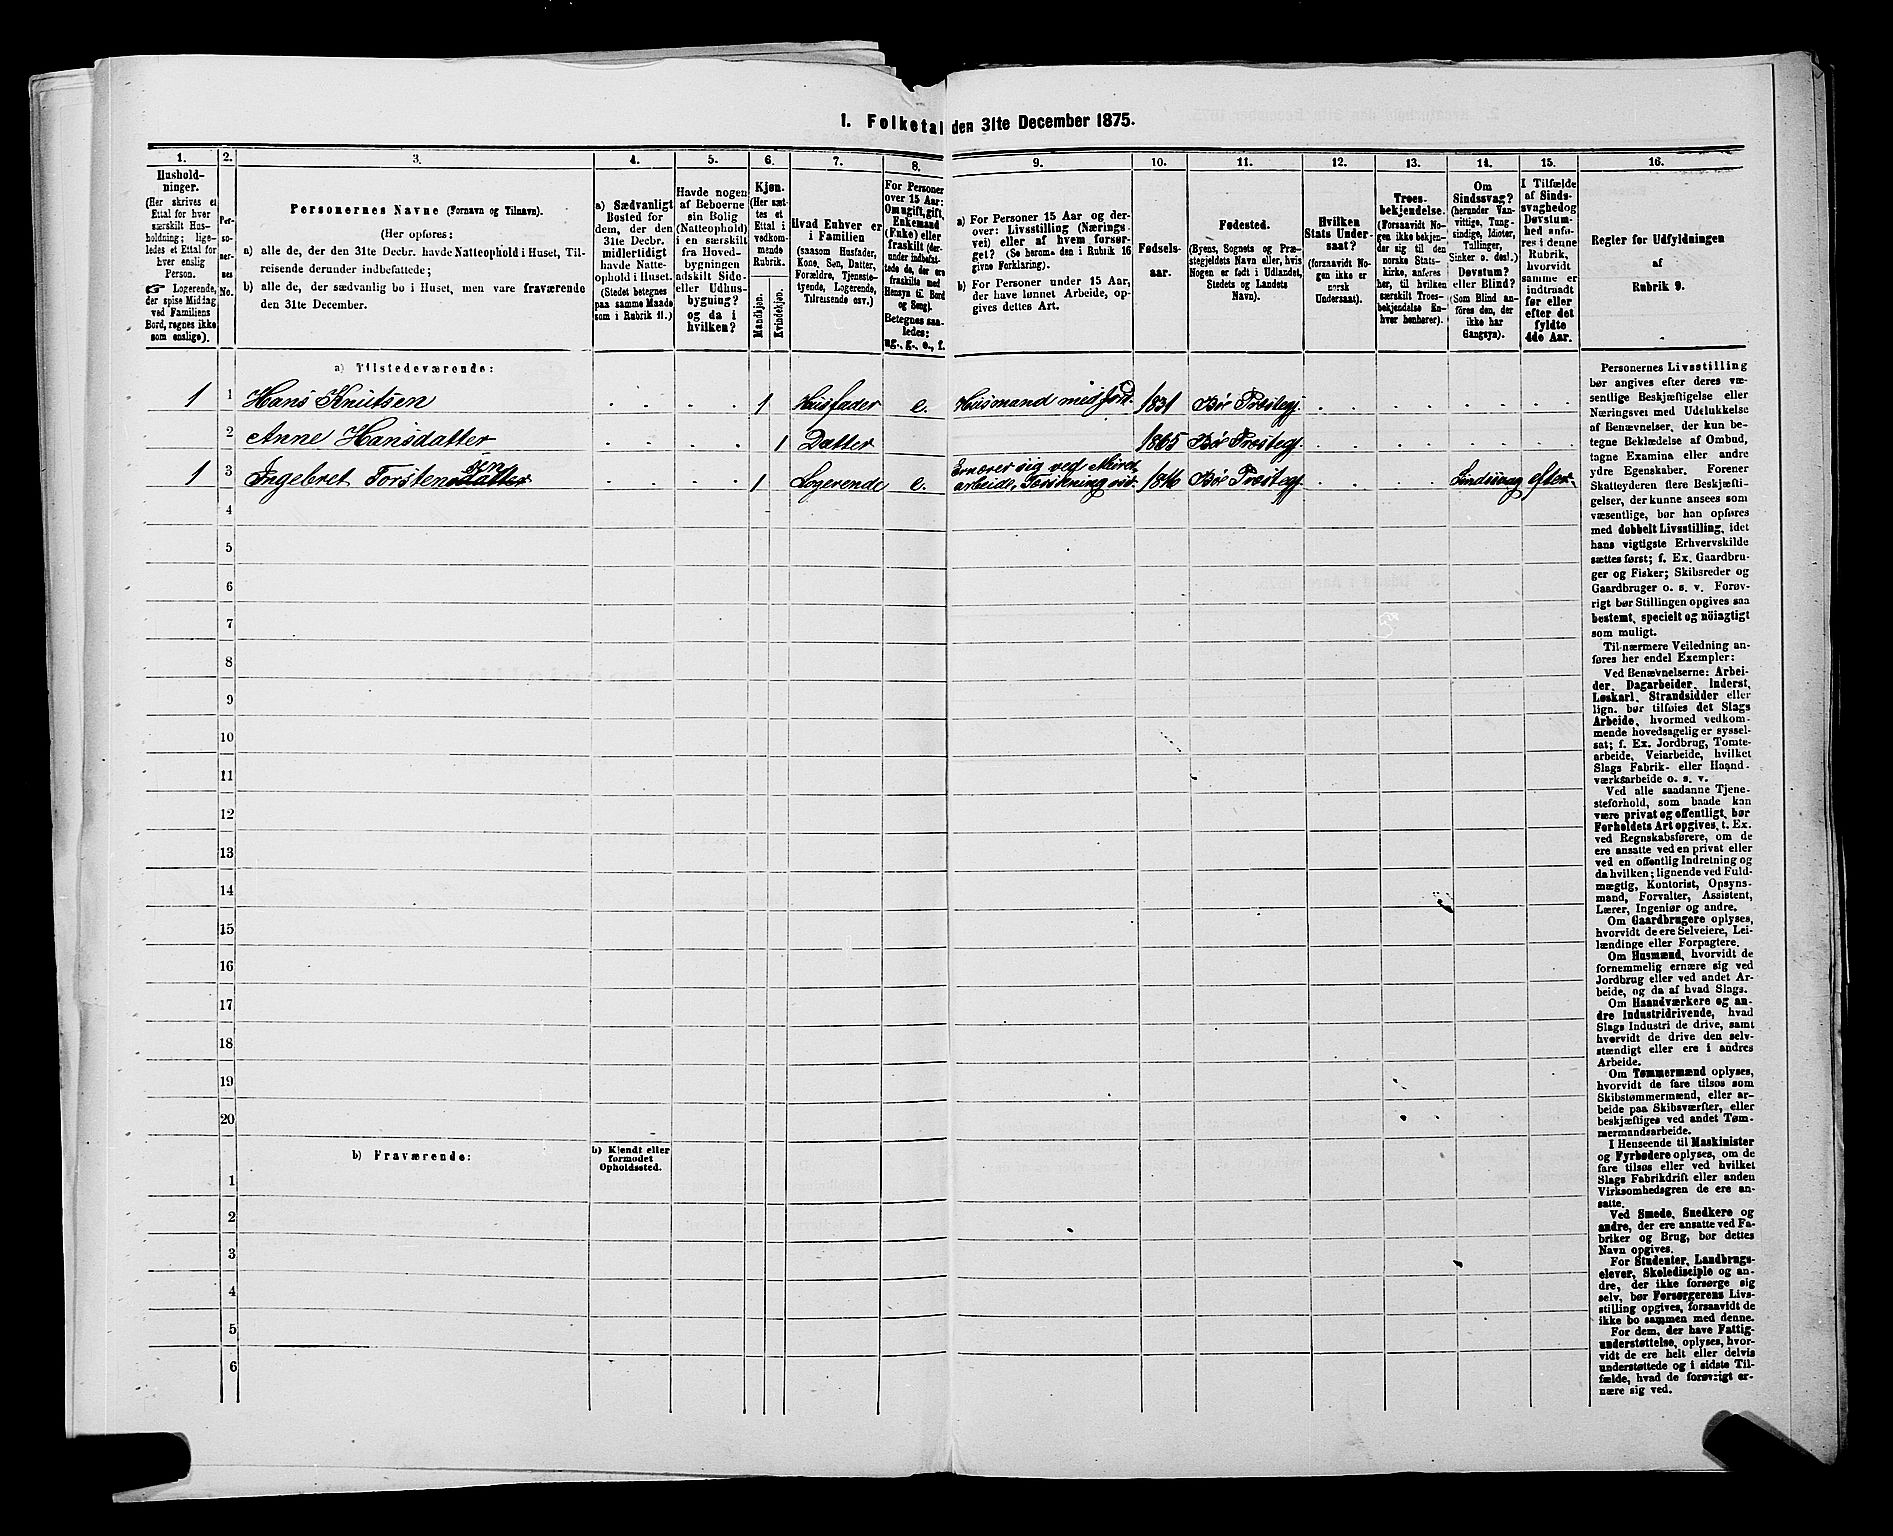 1. Folketal den 31te December 1875.
1. 2. 3. 4. 5. 6. 7. 8. 9. 10. 11. 12. 13. 14. 15. 16.
Hushold-
ninger.
(Her skrives et
Ettal for hver
særskilt Hus-
holdning; lige-
ledes et Ettal for
hver enslig
Person.
☞ Logerende,
der spise Middag
ved Familiens
Bord, regnes ikke
som enslige).
Per-
so-
ner-
nes
No.
Personernes Navne (Fornavn og Tilnavn).
(Her opføres:
a) alle de, der den 31te Decbr. havde Natteophold i Huset, Til-
reisende derunder indbefattede;
b) alle de, der sædvanlig bo i Huset, men vare fraværende
den 31te December.
a) Sædvanligt
Bosted for
dem, der den
31te Decbr.
midlertidigt
havde Natte-
ophold i Huset.
(Stedet betegnes
paa samme Maade
som i Rubrik 11.)
Havde nogen
af Beboerne
sin Bolig
(Natteophold)
i en særskilt
fra Hoved-
bygningen
adskilt Side-
eller Udhus-
bygning?
og da i
hvilken?
Kjøn.
(Her sæt-
tes et
Ettal i
vedkom-
mende
Rubrik.
Mandkjøn.
Kvindekjøn.
Hvad Enhver er
i Familien
(saasom Husfader,
Kone, Søn, Datter,
Forældre, Tjeneste-
tyende, Logerende,
Tilreisende osv.)
For Personer
over 15 Aar:
Om ugift, gift,
Enkemand
(Enke) eller
fraskilt (der-
under indbefat-
tede de, der ere
fraskilte med
Hensyn til Bord
og Seng).
Betegnes saa-
ledes:
ug., g., e., f.
a) For Personer 15 Aar og der-
over: Livsstilling (Nærings-
vei) eller af hvem forsør-
get? (Se herom den i Rubrik 16
givne Forklaring).
b) For Personer under 15 Aar,
der have lønnet Arbeide, op-
gives dettes Art.
Fødsels-
aar.
Fødested.
(Byens, Sognets og Præ-
stegjeldets Navn eller, hvis
Nogen er født i Udlandet,
Stedets og Landets
Navn).
Hvilken
Stats Under-
saat?
(forsaavidt No-
gen ikke er
norsk
Undersaat).
Troes-
bekjendelse.
(Forsaavidt No-
gen ikke bekjen-
der sig til den
norske Stats-
kirke, anføres
her, til hvilken
særskilt Troes-
bekjendelse En-
hver henhører).
Om
Sindssvag?
(herunder Van-
vittige, Tung-
sindige, Idioter,
Tullinger,
Sinker o. desl.).
Døvstum?
eller Blind?
(Som Blind an-
føres den, der
ikke har
Gangsyn).
I Tilfælde
af Sinds-
svaghed og
Døvstum-
hed anfø-
res i denne
Rubrik,
hvorvidt
samme er
indtraadt
før eller
efter det
fyldte
4de Aar.
Regler for Udfyldningen
af
Rubrik 9.
a) Tilstedeværende:
1 1 Hans Knutsen 1 Husfader e. Husmand med Jord. 1831 Bø Præstegj.
2 Anne Hansdatter 1 Datter 1865 Bø Præstegj.
1 3 Ingebret Torstensen 1 Logerende e. Ernærer sig ved
arbeide, Bø Præstegj. Sindssvag efter
4
5
6
7
8
9
10
11
12
13
14
15
16
17
18
19
20
b) Fraværende:
b) Kjendt eller
formodet
Opholdssted.
1
2
3
4
5
6
Personernes Livsstilling
bør angives efter deres væ-
sentlige Beskjæftigelse eller
Næringsvei med Udelukkelse
af Benævnelser, der kun be-
tegne Beklædelse af Ombud,
tagne Examina eller andre
ydre Egenskaber. Forener
Skatteyderen flere Beskjæfti-
gelser, der kunne ansees som
væsentlige, bør han opføres
med dobbelt Livsstilling, idet
hans vigtigste Erhvervskilde
sættes først; f. Ex. Gaardbru-
ger og Fisker; Skibsreder og
Gaardbruger o. s. v. Forøv-
rigt bør Stillingen opgives saa
bestemt, specielt og nöiagtigt
som muligt.
Til nærmere Veiledning an-
føres her endel Exempler:
Ved Benævnelserne: Arbei-
der, Dagarbeider, Inderst,
Løskarl, Strandsidder eller
lign. bør tilføies det Slags
Arbeide, hvormed vedkom-
mende hovedsagelig er syssel-
sat; f. Ex. Jordbrug, Tomte-
arbeide, Veiarbeide, hvilket
Slags Fabrik- eller Haand-
værksarbeide o. s. v.
Ved alle saadanne Tjene-
steforhold, som baade kan
være privat og offentligt, bør
Forholdets Art opgives, t. Ex.
ved Regnskabsførere, om de
ere ansatte ved en privat eller
ved en offentlig Indretning og
da hvilken; lignende ved Fuld-
mægtig, Kontorist, Opsyns-
mand, Forvalter, Assistent,
Lærer, Ingeniør og andre.
Om Gaardbrugere oplyses,
hvorvidt de ere Selveiere, Lei-
lændinge eller Forpagtere.
Om Husmænd, hvorvidt de
fornemmelig ernære sig ved
Jordbrug eller ved andet Ar-
beide, og da af hvad Slags.
Om Haandværkere og an-
dre Industridrivende, hvad
Slags Industri de drive, samt
hvorvidt de drive den selv-
stændigt eller ere i andres
Arbeide.
Om Tømmermænd oplyses,
hvorvidt de fare tilsøs som
Skibstømmermænd, eller ar-
beide paa Skibsværfter, eller
beskjæftiges ved andet Tøm-
mermandsarbeide.
I Henseende til Maskinister
og Fyrbødere oplyses, om de
fare tilsøs eller ved hvilket
Slags Fabrikdrift eller anden
Virksomhedsgren de ere an-
satte.
Ved Smede, Snedkere og
andre, der ere ansatte ved Fa-
briker og Brug, bør dettes
Navn opgives.
For Studenter, Landbrugs-
elever, Skoledisciple og an-
dre, der ikke forsørge sig
selv, bør Forsørgerens Livs-
stilling opgives, forsaavidt de
ikke bo sammen med denne.
For dem, der have Fattig-
understøttelse, oplyses, hvor-
vidt de ere helt eller delvis
understøttede og i sidste Til-
fælde, hvad de forøvrigt er-
nære sig ved.